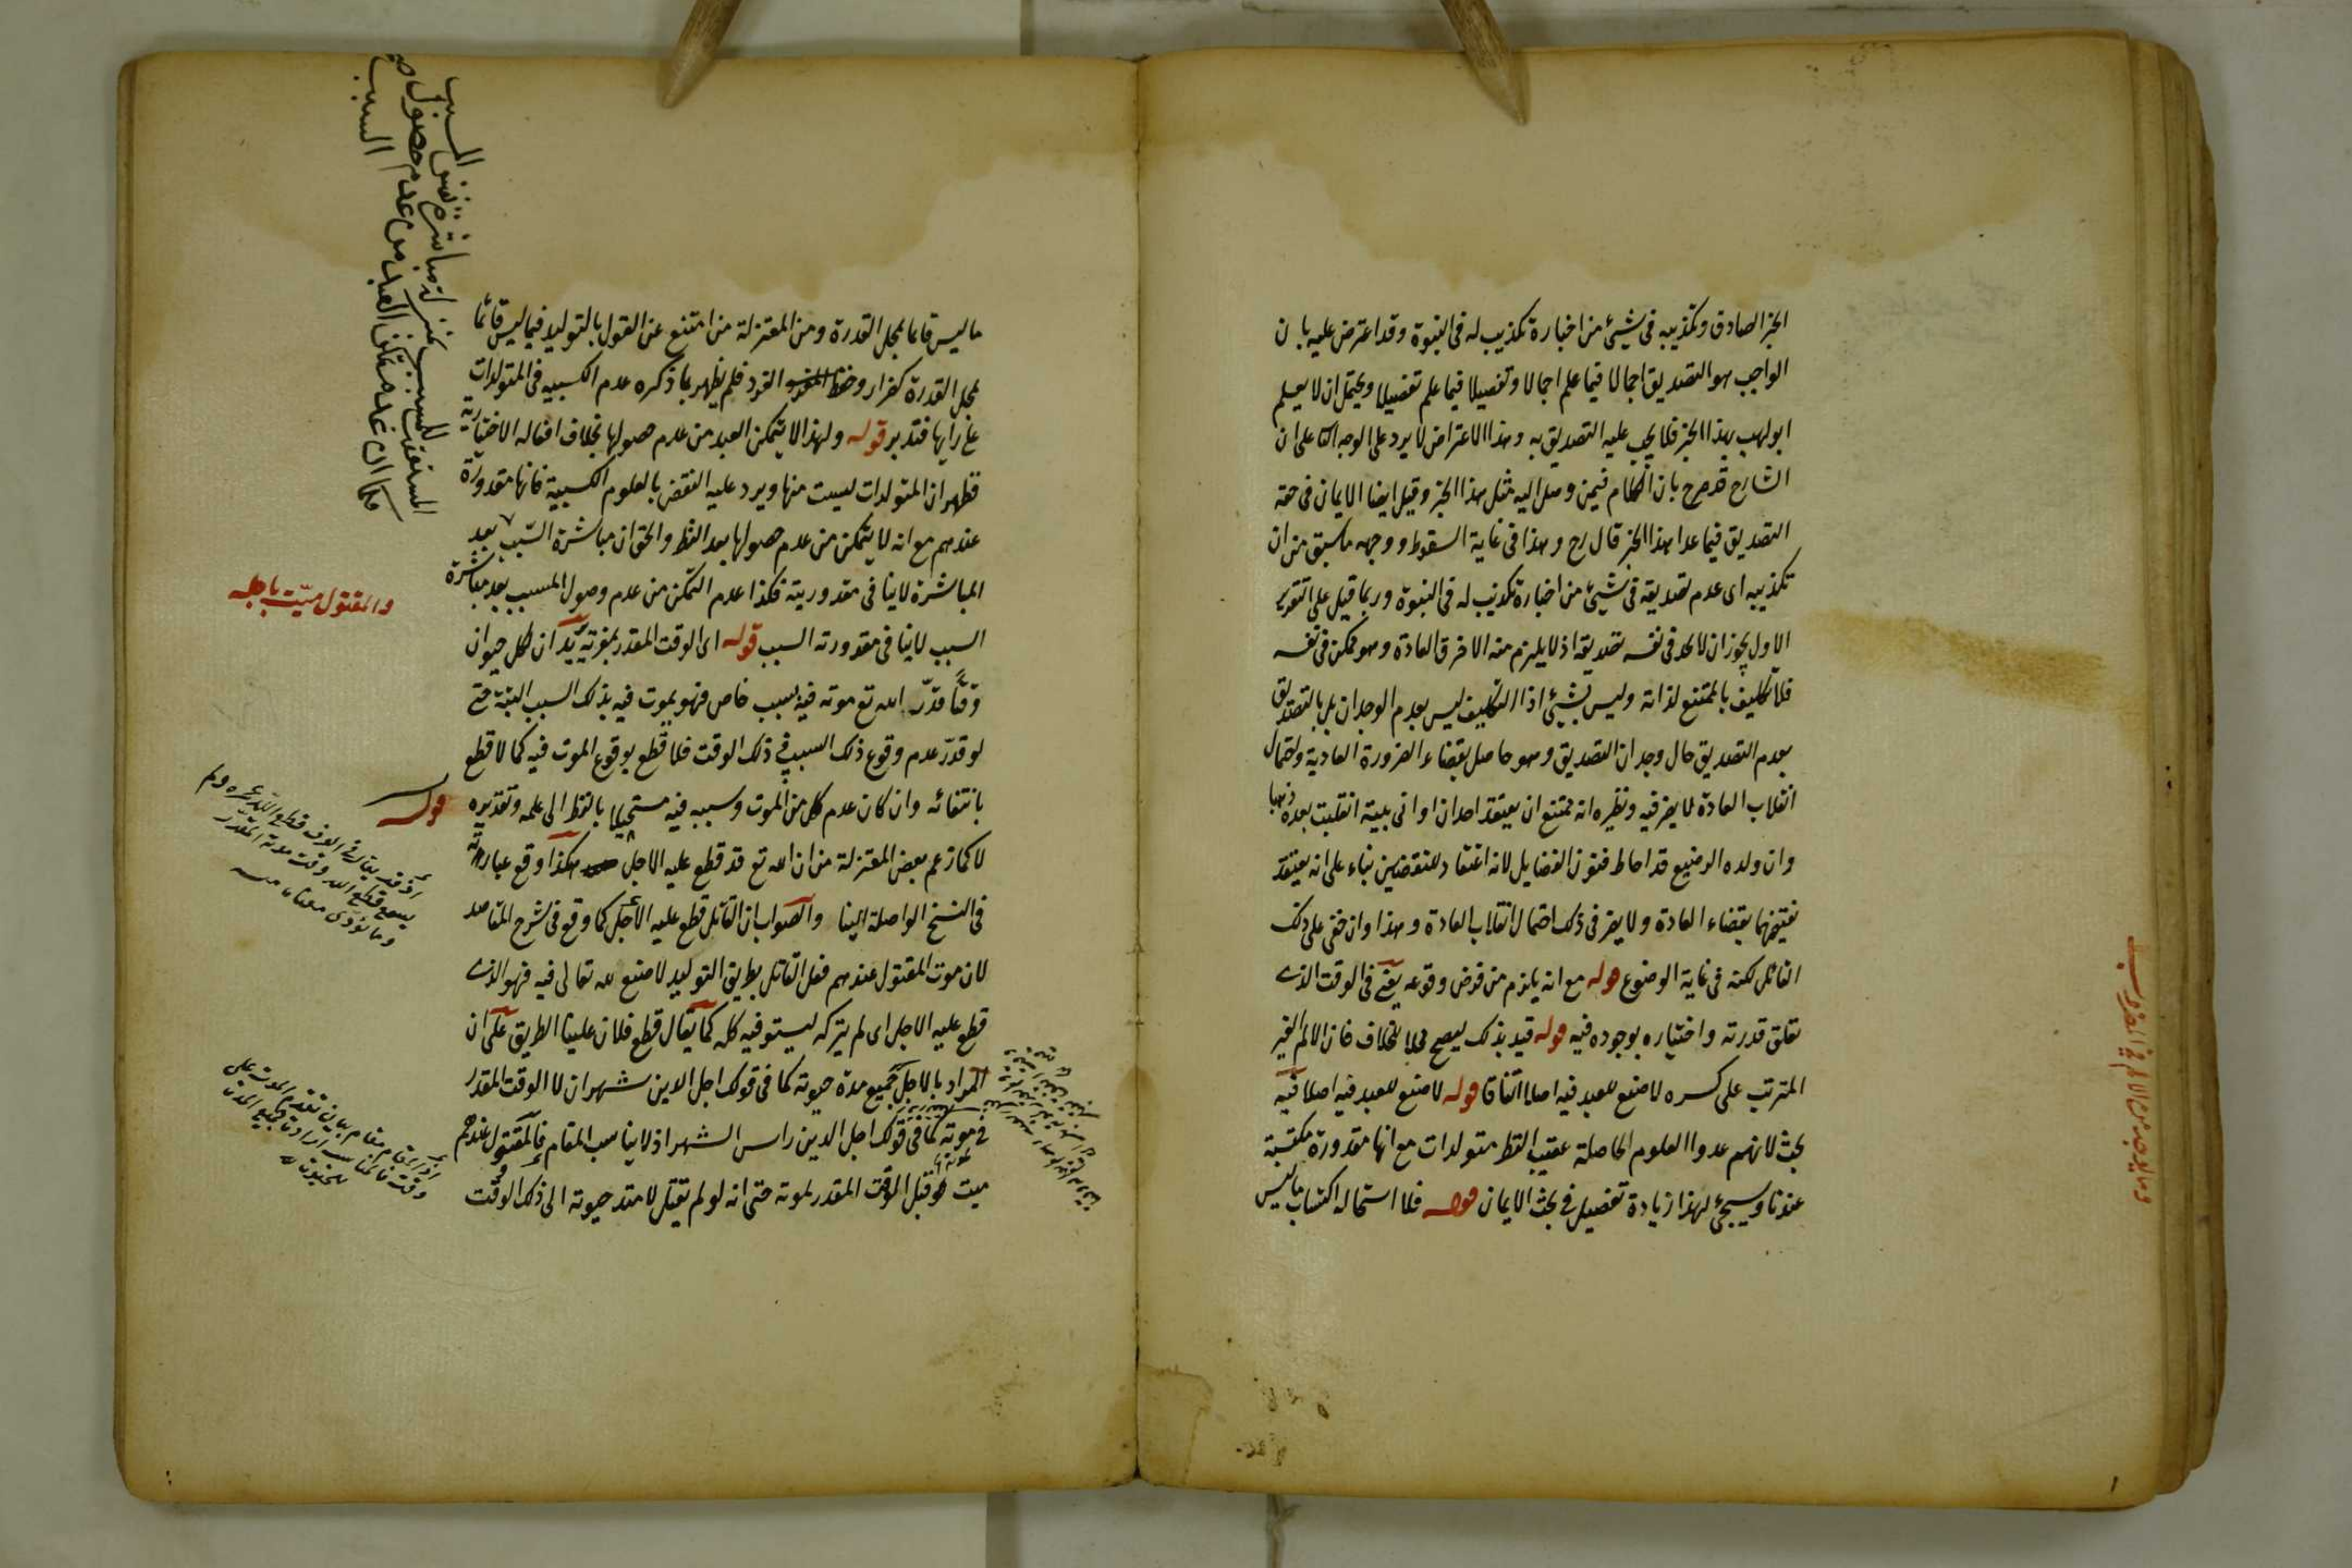 الخبر الصادق وتكذيبه في شيئ من اخباره تكذيب له في النبوة وقد اعترض عليه بان
الواجب هو التصديق اجمالا فيما علم اجمالا وتفصيلا فيما علم تفصيلا ويحتمل ان لا يعلم
ابو لهب بهذا الخبر فلا يجب عليه التصديق به وهذا الاعتراض لا يرد على الوجه على ان
الشارح قد صرح بان الكلام فيمن وصل اليه مثل هذا الخبر وقيل ايضا الايمان في حقه
التصديق فيما عدا هذا الخبر قال رح وهذا في غاية السقوط ووجهه ما سبق من ان
تكذيبه اى عدم تصديقه في شيئ من اخباره تكذيب له في النبوة وربما قيل على التقدير
الاول يجوز ان لا يجد في نفسه تصديقه اذ لا يلزم منه الا خرق العادة وهو ممكن في نفسه
فلا تكليف بالممتنع لذاته وليس بشيئ اذ التكليف ليس بعدم الوجدان بل بالتصديق
بعدم التصديق حال وجدان التصديق وهو حاصل بقضاء الضرورة العادية واحتمال
انقلاب العادة لا يضر فيه ونظيره انه يمتنع ان يعتقد احد ان اواني بيته انقلبت بعده ذهبا
وان ولده الرضيع قد احاط فنون الفضايل لانه اعتقاد للنقيضين بناء على انه يعتقد
نقيضهما بقضاء العادة ولا يضر في ذلك احتمال انقلاب العادة وهذا وان خفى على ذلك
القائل لكنه في غاية الوضوح قوله مع انه يلزم من فرض وقوعه يعنى في الوقت الذى
تعلق قدرته واختياره بوجوده فيه قوله قيد بذلك ليصح محلا للخلاف فان الالم الغير
المترتب على كسره لا صنع للعبد فيه اصلا اتفاقا قوله لا صنع للعبد فيه اصلا فيه
بحث لانهم عدوا العلوم الحاصلة عقيب النظر متولدات مع انها مقدورة مكتسبة
عندنا وسيجئ لهذا زيادة تفصيل في بحث الايمان قوله فلا استحالة اكتساب ما ليس
ما ليس قائما بمحل القدرة ومن المعتزلة من امتنع عن القول بالتوليد فيما ليس قائما
بمحل القدرة كضرار وحفص الفرد فلم يظهر بما ذكره عدم الكسبيه في المتولدات
على رأيها فتدبر قوله ولهذا لا يتمكن العبد من عدم حصولها بخلاف افعاله الاختيارية
فظهر ان المتولدات ليست منها ويرد عليه النقض بالعلوم الكسبية فانها مقدورة
عندهم مع انه لا يتمكن من عدم حصولها بعد النظر والحق ان مباشرة السبب بعد
المباشرة لا ينافي مقدوريته فكذا عدم التمكن من عدم وصول المسبب بعد مباشرة
السبب لا ينافي مقدورته السبب قوله اى الوقت المقدر لموته يريد ان لكل حيوان
وقتا قدّر الله تع موته فيه بسبب خاص فهو يموت فيه بذلك السبب البتة حتى
لو قدّر عدم وقوع ذلك السبب في ذلك الوقت فلا قطع بوقوع الموت فيه كما لا قطع
بانتفائه وان كان عدم كل من الموت وسببه فيه مستحيلا بالنظر الى علمه وتقديره
لا كما زعم بعض المعتزلة من ان الله تع قد قطع عليه الاجل هكذا وقع عبارته
في النسخ الواصلة الينا والصواب ان القاتل قطع عليه الاجل كما وقع في شرح المقاصد
لان موت المقتول عندهم فعل القاتل بطريق التوليد لا صنع لله تعالى فيه فهو الذى
قطع عليه الاجل اى لم يتركه ليستوفيه كله كما يقال قطع فلان علينا الطريق على ان
المراد بالاجل جميع مدة حيوته كما في قولك اجل الدين شهران لا الوقت المقدر
في موته كما في قولك اجل الدين راس الشهر اذ لا يناسب المقام فالمقتول عندهم
ميت قبل الوقت المقدر لموته حتى انه لو لم يقتل لامتد حيوته الى ذلك الوقت
والمقتول ميّت باجله
قوله